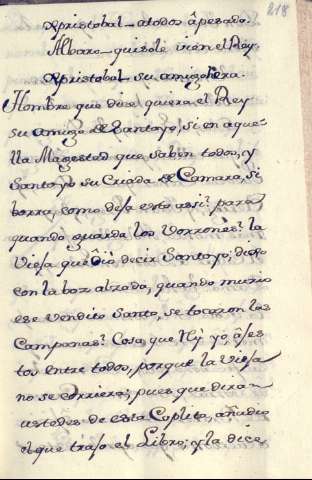 218
Xpristobal_ atodos â pesado.
Albaro_ quisole vien el Rey.
Xpristobal_ su amigo hera.
Hombre que dise quiera el Rey
su amigo de Santoyo, si en aque-
lla Magestad que saben todos, y
Santoyo su Criado de Camara, si
borra, como deja esto assi? para
quando guarda los borrones? la
Vieja que oio decir Santoyo; dijo
con la boz alzada, quando murio
ese vendito Santo, se tocaron las
Campanas? Cosa, que Hý yo, âses
tos entre todos, porque la Vieja
no se corriera; pues que diran
ustedes de esta Coplita, añadio
el que trajo el Libro; y la dice,